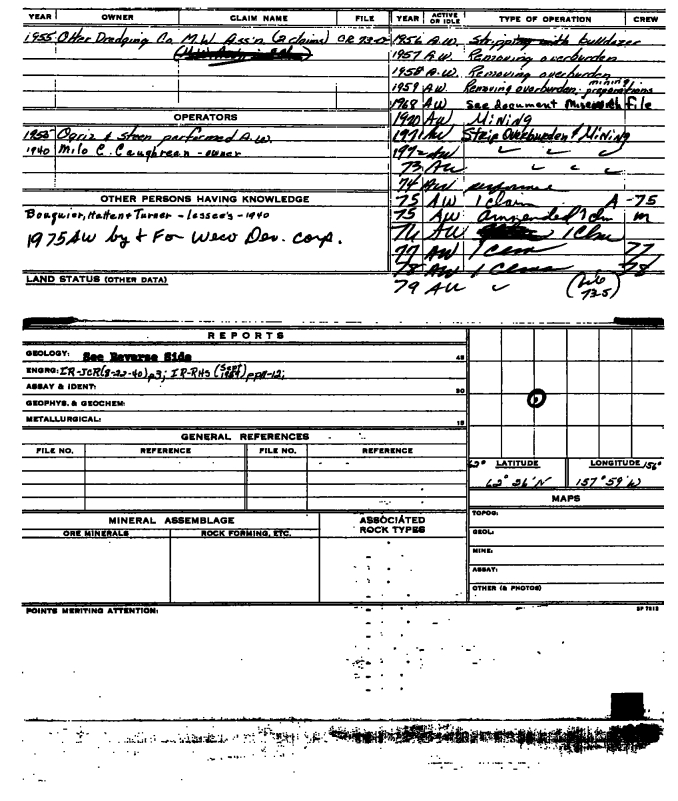 YEAR OWNER CLAIM NAME FILE YEAR ACTIVE OR IDLE TYPE OF OPERATION CREW
1955 Otter Dredging Co. M.W. Ass'n (2 claims) 1956 A.W. Stripping with bulldozer
1957 A.W. Removing overburden
1958 A.W. Removing overburden
1959 A.W. Removing overburden; mining preparations
1968 AW See document file
1970 AW Mining
OPERATORS 1971 AW Strip Overburden & Mining
1955 & Steen performed A.W. 1972 AW ✓ ✓ ✓
1940 Milo C. Caughrean - owner 73 AW ✓ ✓ ✓
74 AW
OTHER PERSONS HAVING KNOWLEDGE 75 AW 1 claim A -75
Bouquier, Hatten & Turner - lessee's - 1940 75 AW m
1975 AW by & For Weco Dev. corp. 76 AW
77 AW 77
78 AW 78
LAND STATUS (OTHER DATA) 79 AW ✓
REPORTS
GEOLOGY: See Reverse Side 45
ENGRG: IR-JCR(8-22-40)p3; IR-RHS (Sept 1964) pp11-12;
ASSAY & IDENT: 30
GEOPHYS. & GEOCHEM:
METALLURGICAL: 15
GENERAL REFERENCES
FILE NO. REFERENCE FILE NO. REFERENCE
62° LATITUDE LONGITUDE 156°
62° 26'N 157° 59'W
MAPS
MINERAL ASSEMBLAGE ASSOCIATED ROCK TYPES
ORE MINERALS ROCK FORMING, ETC.
TOPOG:
GEOL:
MINE:
ASSAY:
OTHER (& PHOTOS)
POINTS MERITING ATTENTION: